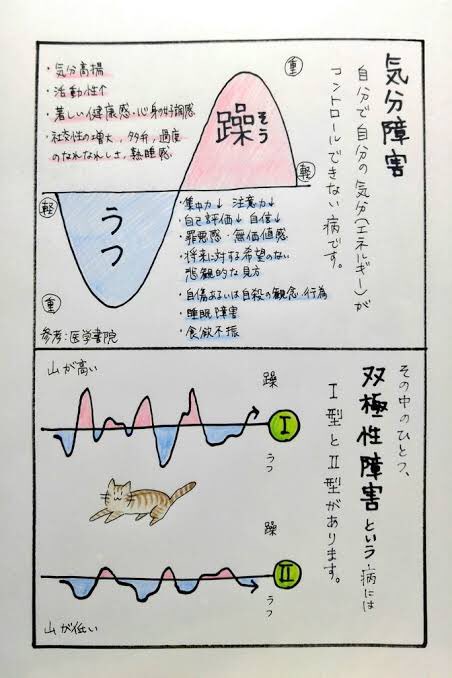 気分障害
自分で自分の気分(エネルギー)が
コントロールできない病です。
・気分高揚
・活動性↑
・著しい健康感・心身の好調感
・社交性の増大、多弁、過度
のなれなれしさ、熱睡感
重
躁
そう
軽
軽
うつ
重
・集中力↓ 注意力↓
・自己評価↓ 自信↓
・罪悪感・無価値感
・将来に対する希望のない
悲観的な見方
・自傷あるいは自殺の観念・行為
・睡眠障害
・食欲不振
参考:医学書院
その中のひとつ、
双極性障害という病には
Ⅰ型とⅡ型があります。
山が高い
躁
Ⅰ
うつ
躁
Ⅱ
うつ
山が低い